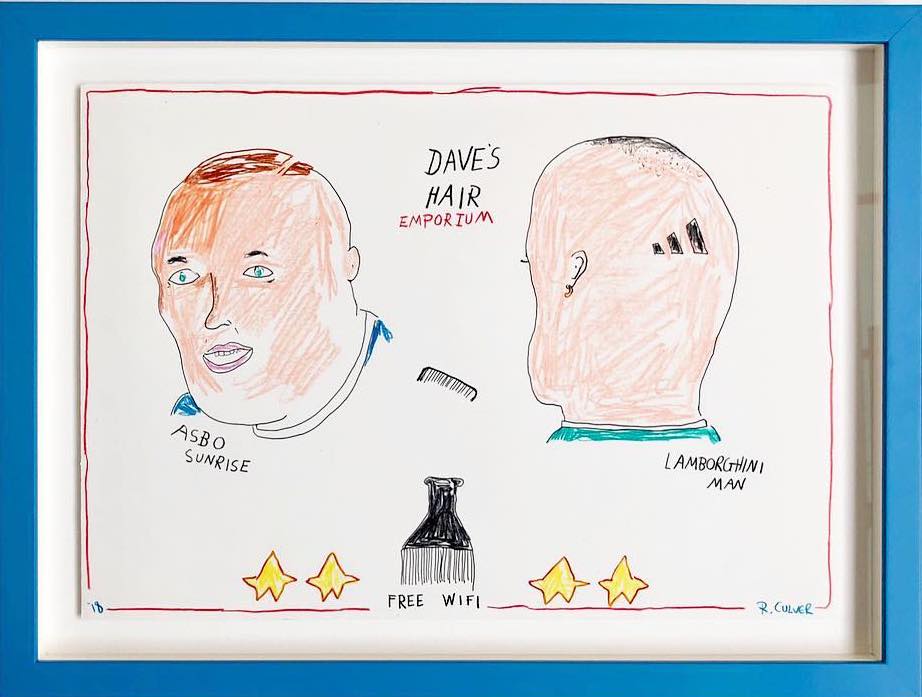 DAVE'S
HAIR
EMPORIUM
ASBO
SUNRISE
LAMBORGHINI
MAN
FREE WIFI
'18
R. CULVER